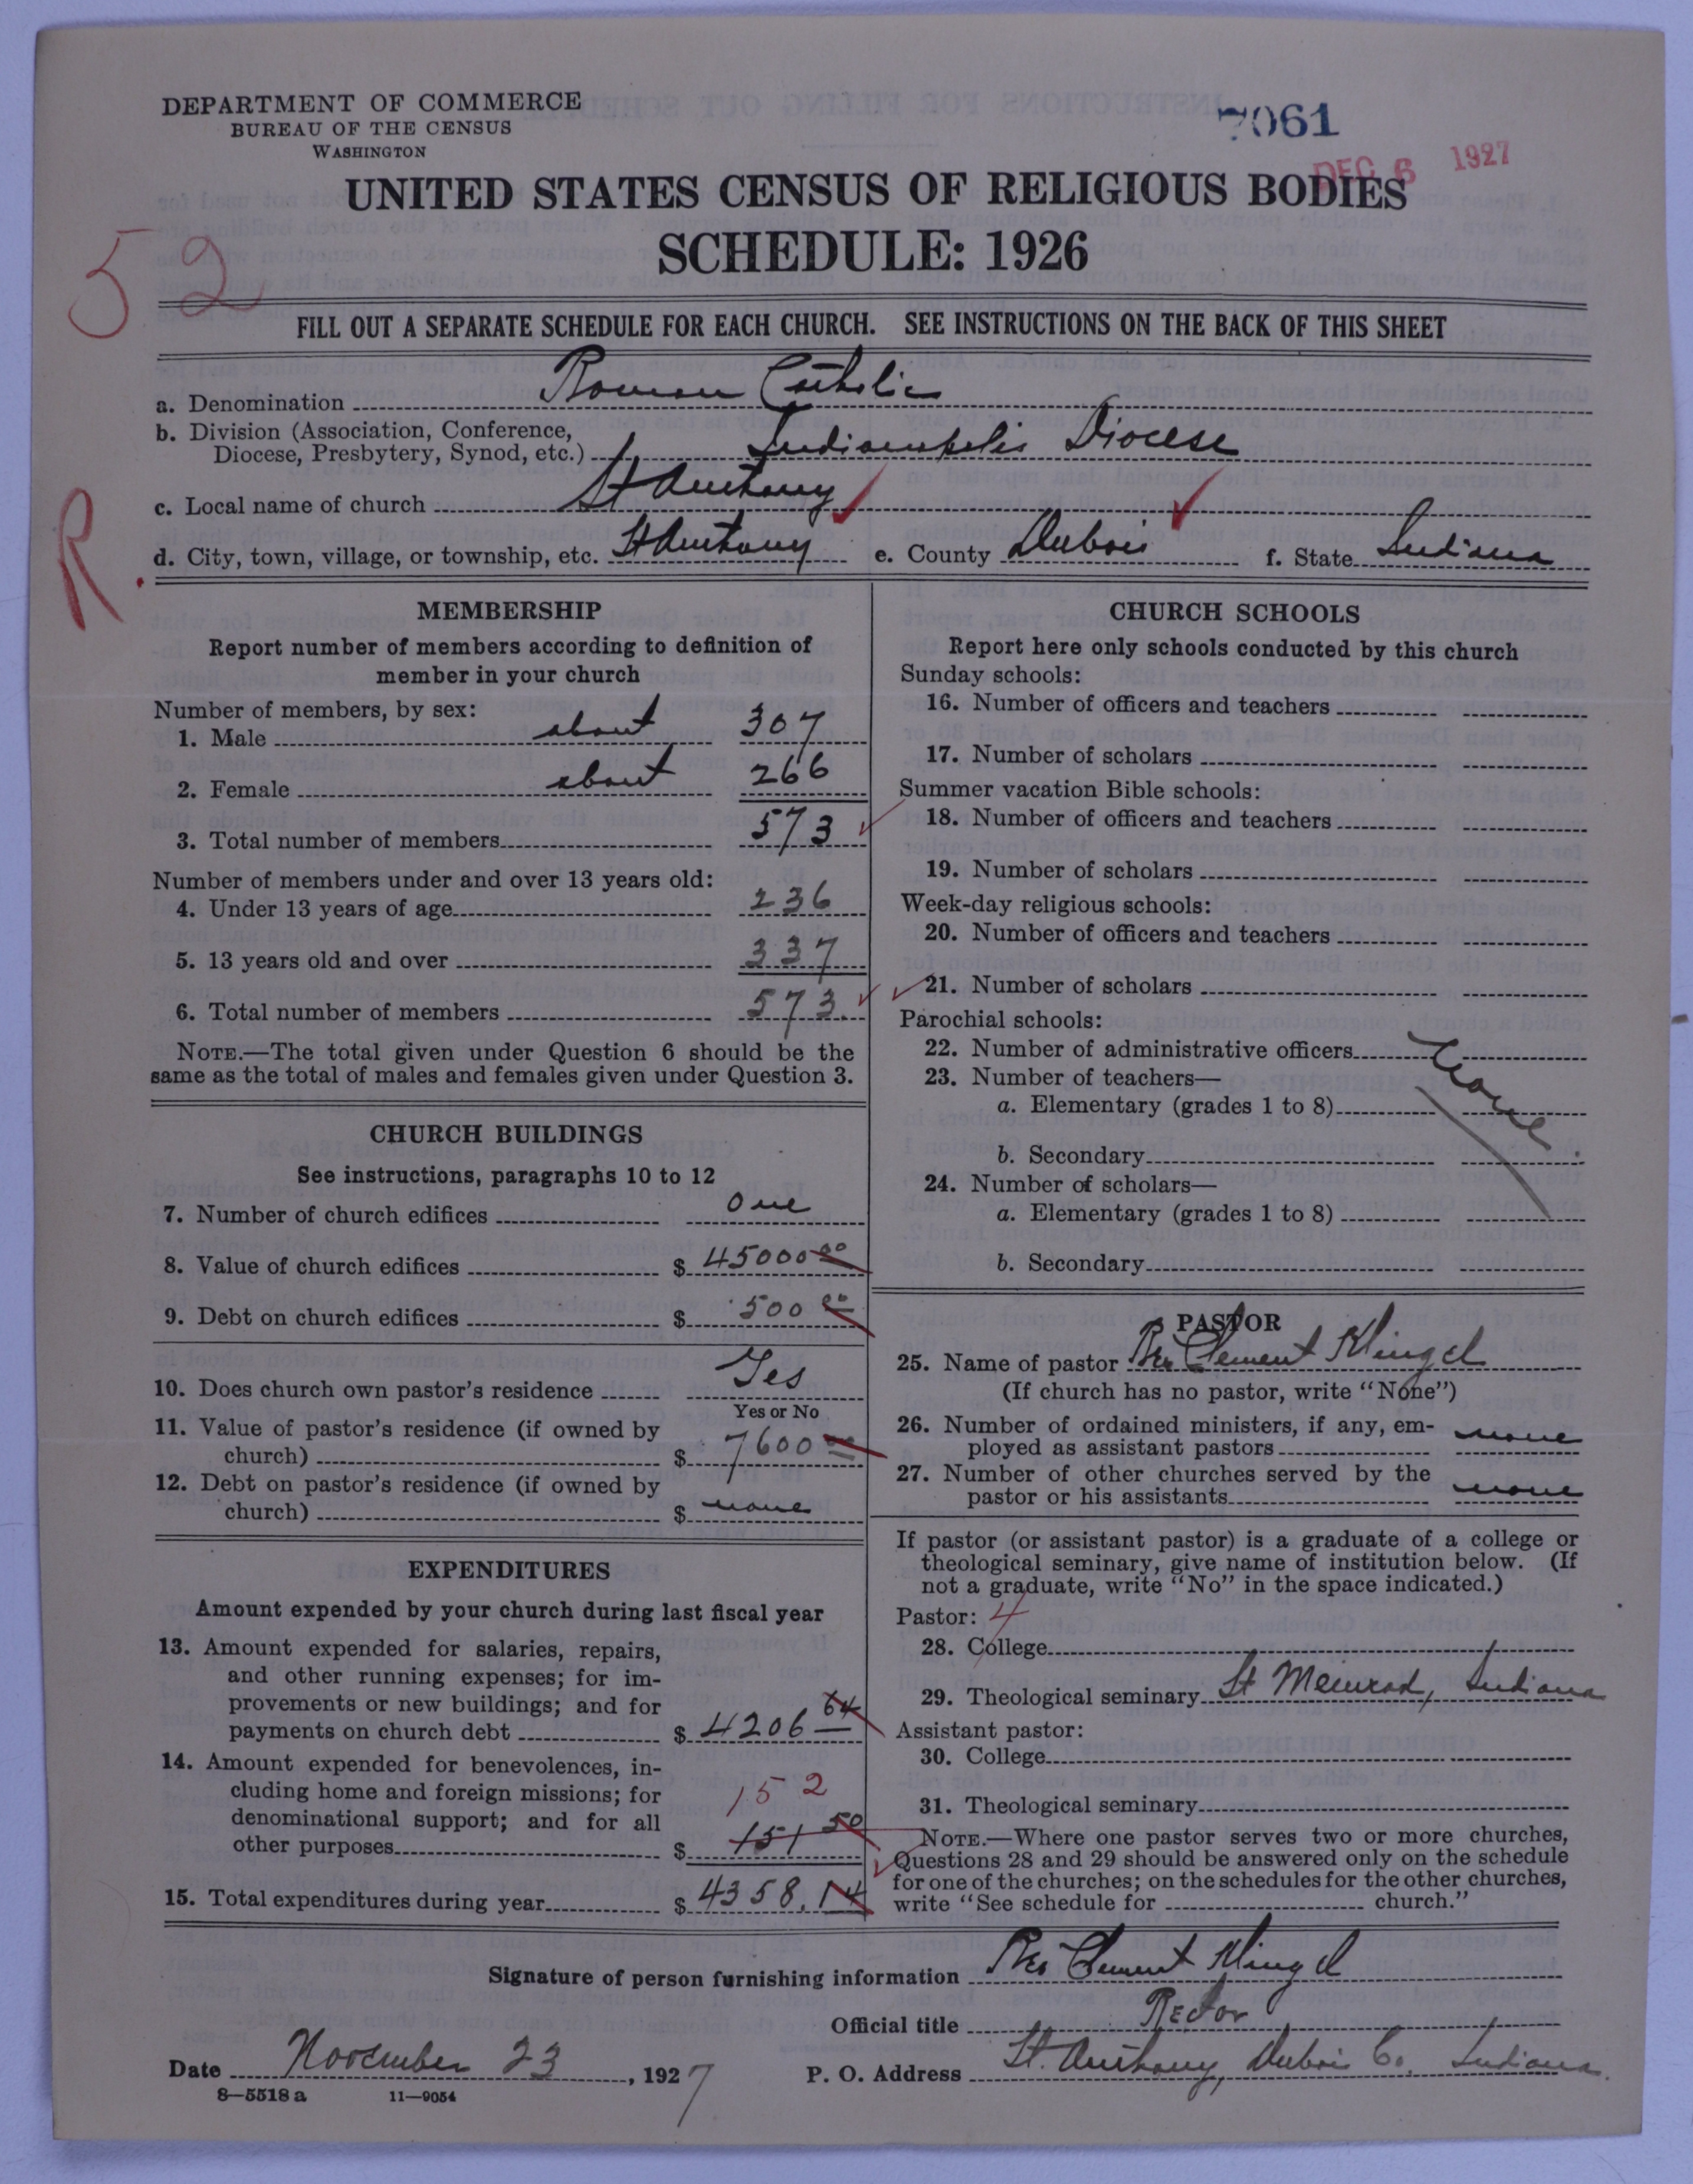 DEPARTMENT OF COMMERCE
BUREAU OF THE CENSUS
WASHINGTON
7061
DEC 6 1927
UNITED STATES CENSUS OF RELIGIOUS BODIES
SCHEDULE: 1926
52
FILL OUT A SEPARATE SCHEDULE FOR EACH CHURCH. SEE INSTRUCTIONS ON THE BACK OF THIS SHEET
a. Denomination Roman Catholic
b. Division (Association, Conference,
Diocese, Presbytery, Synod, etc.) Indianapolis Diocese
c. Local name of church St Anthony
R.
d. City, town, village, or township, etc. St Anthony e. County Dubois f. State Indiana
MEMBERSHIP
Report number of members according to definition of
member in your church
Number of members, by sex:
1. Male about 307
2. Female about 266
3. Total number of members 573
Number of members under and over 13 years old:
4. Under 13 years of age 236
5. 13 years old and over 337
6. Total number of members 573.
NOTE.—The total given under Question 6 should be the
same as the total of males and females given under Question 3.
CHURCH BUILDINGS
See instructions, paragraphs 10 to 12
7. Number of church edifices One
8. Value of church edifices $ 45000 00
9. Debt on church edifices $ 500 00
10. Does church own pastor's residence Yes
Yes or No
11. Value of pastor's residence (if owned by
church) $ 7600 00
12. Debt on pastor's residence (if owned by
church) $ none
EXPENDITURES
Amount expended by your church during last fiscal year
13. Amount expended for salaries, repairs,
and other running expenses; for im-
provements or new buildings; and for
payments on church debt $ 4206 64
14. Amount expended for benevolences, in-
cluding home and foreign missions; for 152
denominational support; and for all
other purposes $ 151 50
15. Total expenditures during year $ 4358.14
CHURCH SCHOOLS
Report here only schools conducted by this church
Sunday schools:
16. Number of officers and teachers
17. Number of scholars
Summer vacation Bible schools:
18. Number of officers and teachers
19. Number of scholars
Week-day religious schools:
20. Number of officers and teachers
21. Number of scholars
Parochial schools:
22. Number of administrative officers
None.
23. Number of teachers—
a. Elementary (grades 1 to 8)
b. Secondary
24. Number of scholars—
a. Elementary (grades 1 to 8)
b. Secondary
PASTOR
25. Name of pastor Rev Clement Klingel
(If church has no pastor, write "None")
26. Number of ordained ministers, if any, em-
ployed as assistant pastors none
27. Number of other churches served by the
pastor or his assistants none
If pastor (or assistant pastor) is a graduate of a college or
theological seminary, give name of institution below. (If
not a graduate, write "No" in the space indicated.)
Pastor: 4
28. College
29. Theological seminary St Meinrad, Indiana
Assistant pastor:
30. College
31. Theological seminary
NOTE.—Where one pastor serves two or more churches,
Questions 28 and 29 should be answered only on the schedule
for one of the churches; on the schedules for the other churches,
write "See schedule for church."
Signature of person furnishing information Rev Clement Klingel
Official title Rector
Date November 23, 1927 P. O. Address St. Anthony, Dubois Co. Indiana.
8—5518 a 11—9054